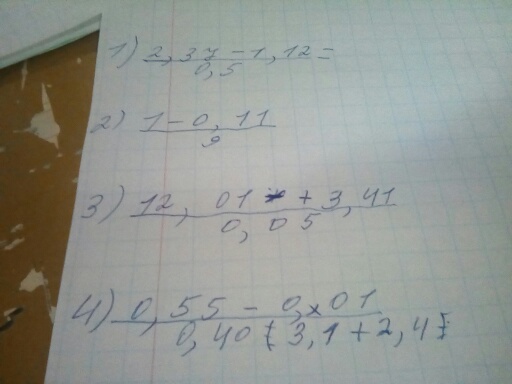 1) 2,37-1,12=
0,5
2) 1-0,11
9
3) 12,01 + 3,41
0,05
4) 0,55 - 0,01
0,40 (3,1+2,4)